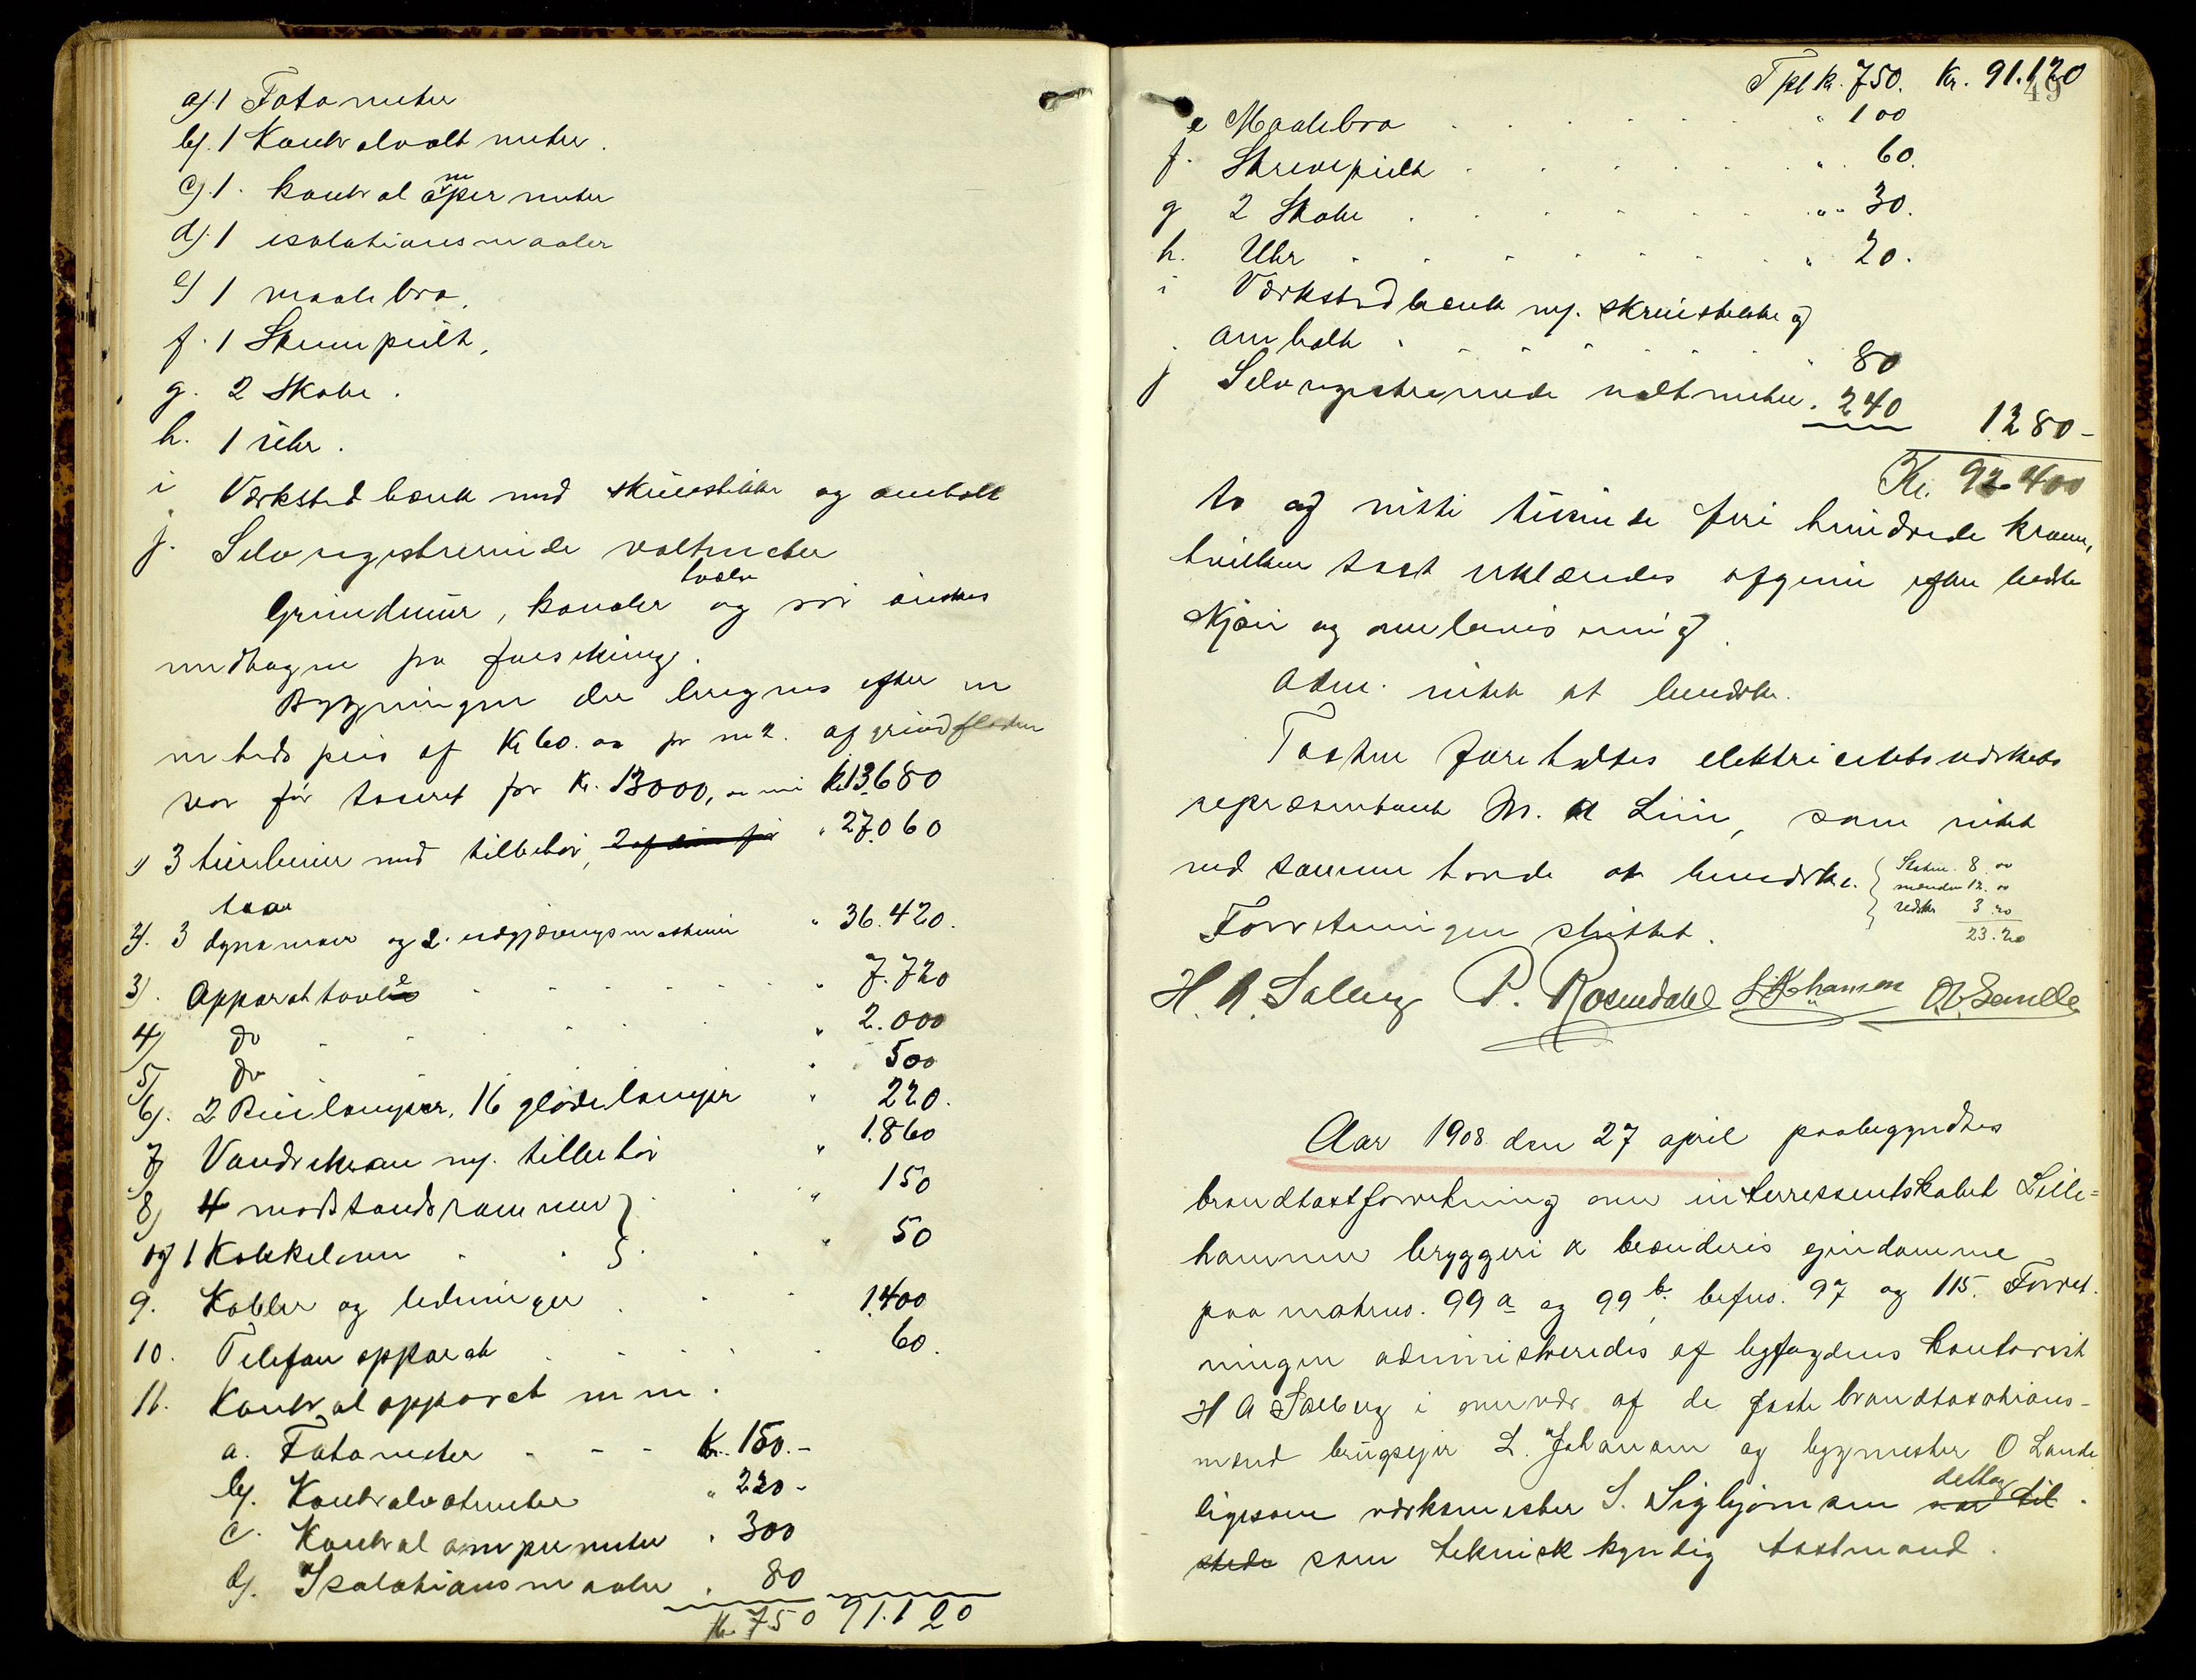 a). 1 Fotometer
b). 1 Kontrolvoltmeter.
c). 1. kontrol amper meter
d). 1 isolationsmaaler
e) 1 maalebro,
f. 1 Skrivepult,
g. 2 Skabe.
h. 1 uhr.
i Værkstedbænk med skruestikke og ambolt
j. Selvregistrerende voltmeter
Grundmur, kanaler hvælv og rör önskes
undtagne fra forsikring.
Bygningen der beregnes efter en
enheds pris af Kr 60.00 pr m2. af grundfladen
var för taxeret for Kr. 13000, nu Kr 13680
1) 3 turbiner med tilbehör, 2 af " 27.060
2). 3 dynamoer og 2 udgjævningsmaskiner " 36.420.
3). Apparattavle " 7.720
4) do " 2.000
5) do " 500
6). 2 Buelamper, 16 glödelamper " 220.
7) Vandreкran m/. tilbehör " 1.860
8) 4 modstandsrammer } " 150
og 1 Kakkelovn } " 50
9. Kabler og ledninger 1.400
10. Telefonapparat 60.
11. Kontrolapparat m m.
a. Fotometer Kr. 150.-
b). Kontrolvoltmeter " 220-
c. Kontrol ampermeter " 300
d). Isolationsmaaler " 80
Kr. 750 91.120
Tpt kr. 750. Kr. 91.120
49
e Maalebro " 100
f. Skrivepult " 60.
g 2 Skabe " 30.
h. Uhr " 20.
i Værkstedbænk m/. skruestikke og
ambolt " 80
j Selvregistrerende voltmeter. 240 1280-
Kr. 92.400
to og nitti tusinde fire hundrede kroner,
hvilken taxt erklæredes afgiven efter bedste
Skjön og overbevisning.
Adm. intet at bemærke.
Taxten foreholdtes elektricitetsverkets
repræsentant M. A Lien, som intet
ved samme havde at bemærke. { Skatm. 8.00
mænden 12.00
3.20
23.20
Forretningen sluttet.
H. A. Salberg P. Rosendahl L. Johansen O. Lande
Aar 1908 den 27 april paabegyndtes
brandtaxtforretning over interressentskabet Lille-
hammer bryggeri & brænderis eiendomme
paa matrno. 99 a og 99 b. brfno. 97 og 115. Forret-
ningen administreredes af byfogdens kontorist
H A Salberg i overvær af de faste brandtaxations-
mænd brugseier L. Johansen og bygmester O Lande
ligesom værksmester S. Sigbjörnsen deltog var til-
stede som teknisk kyndig taxtmand.